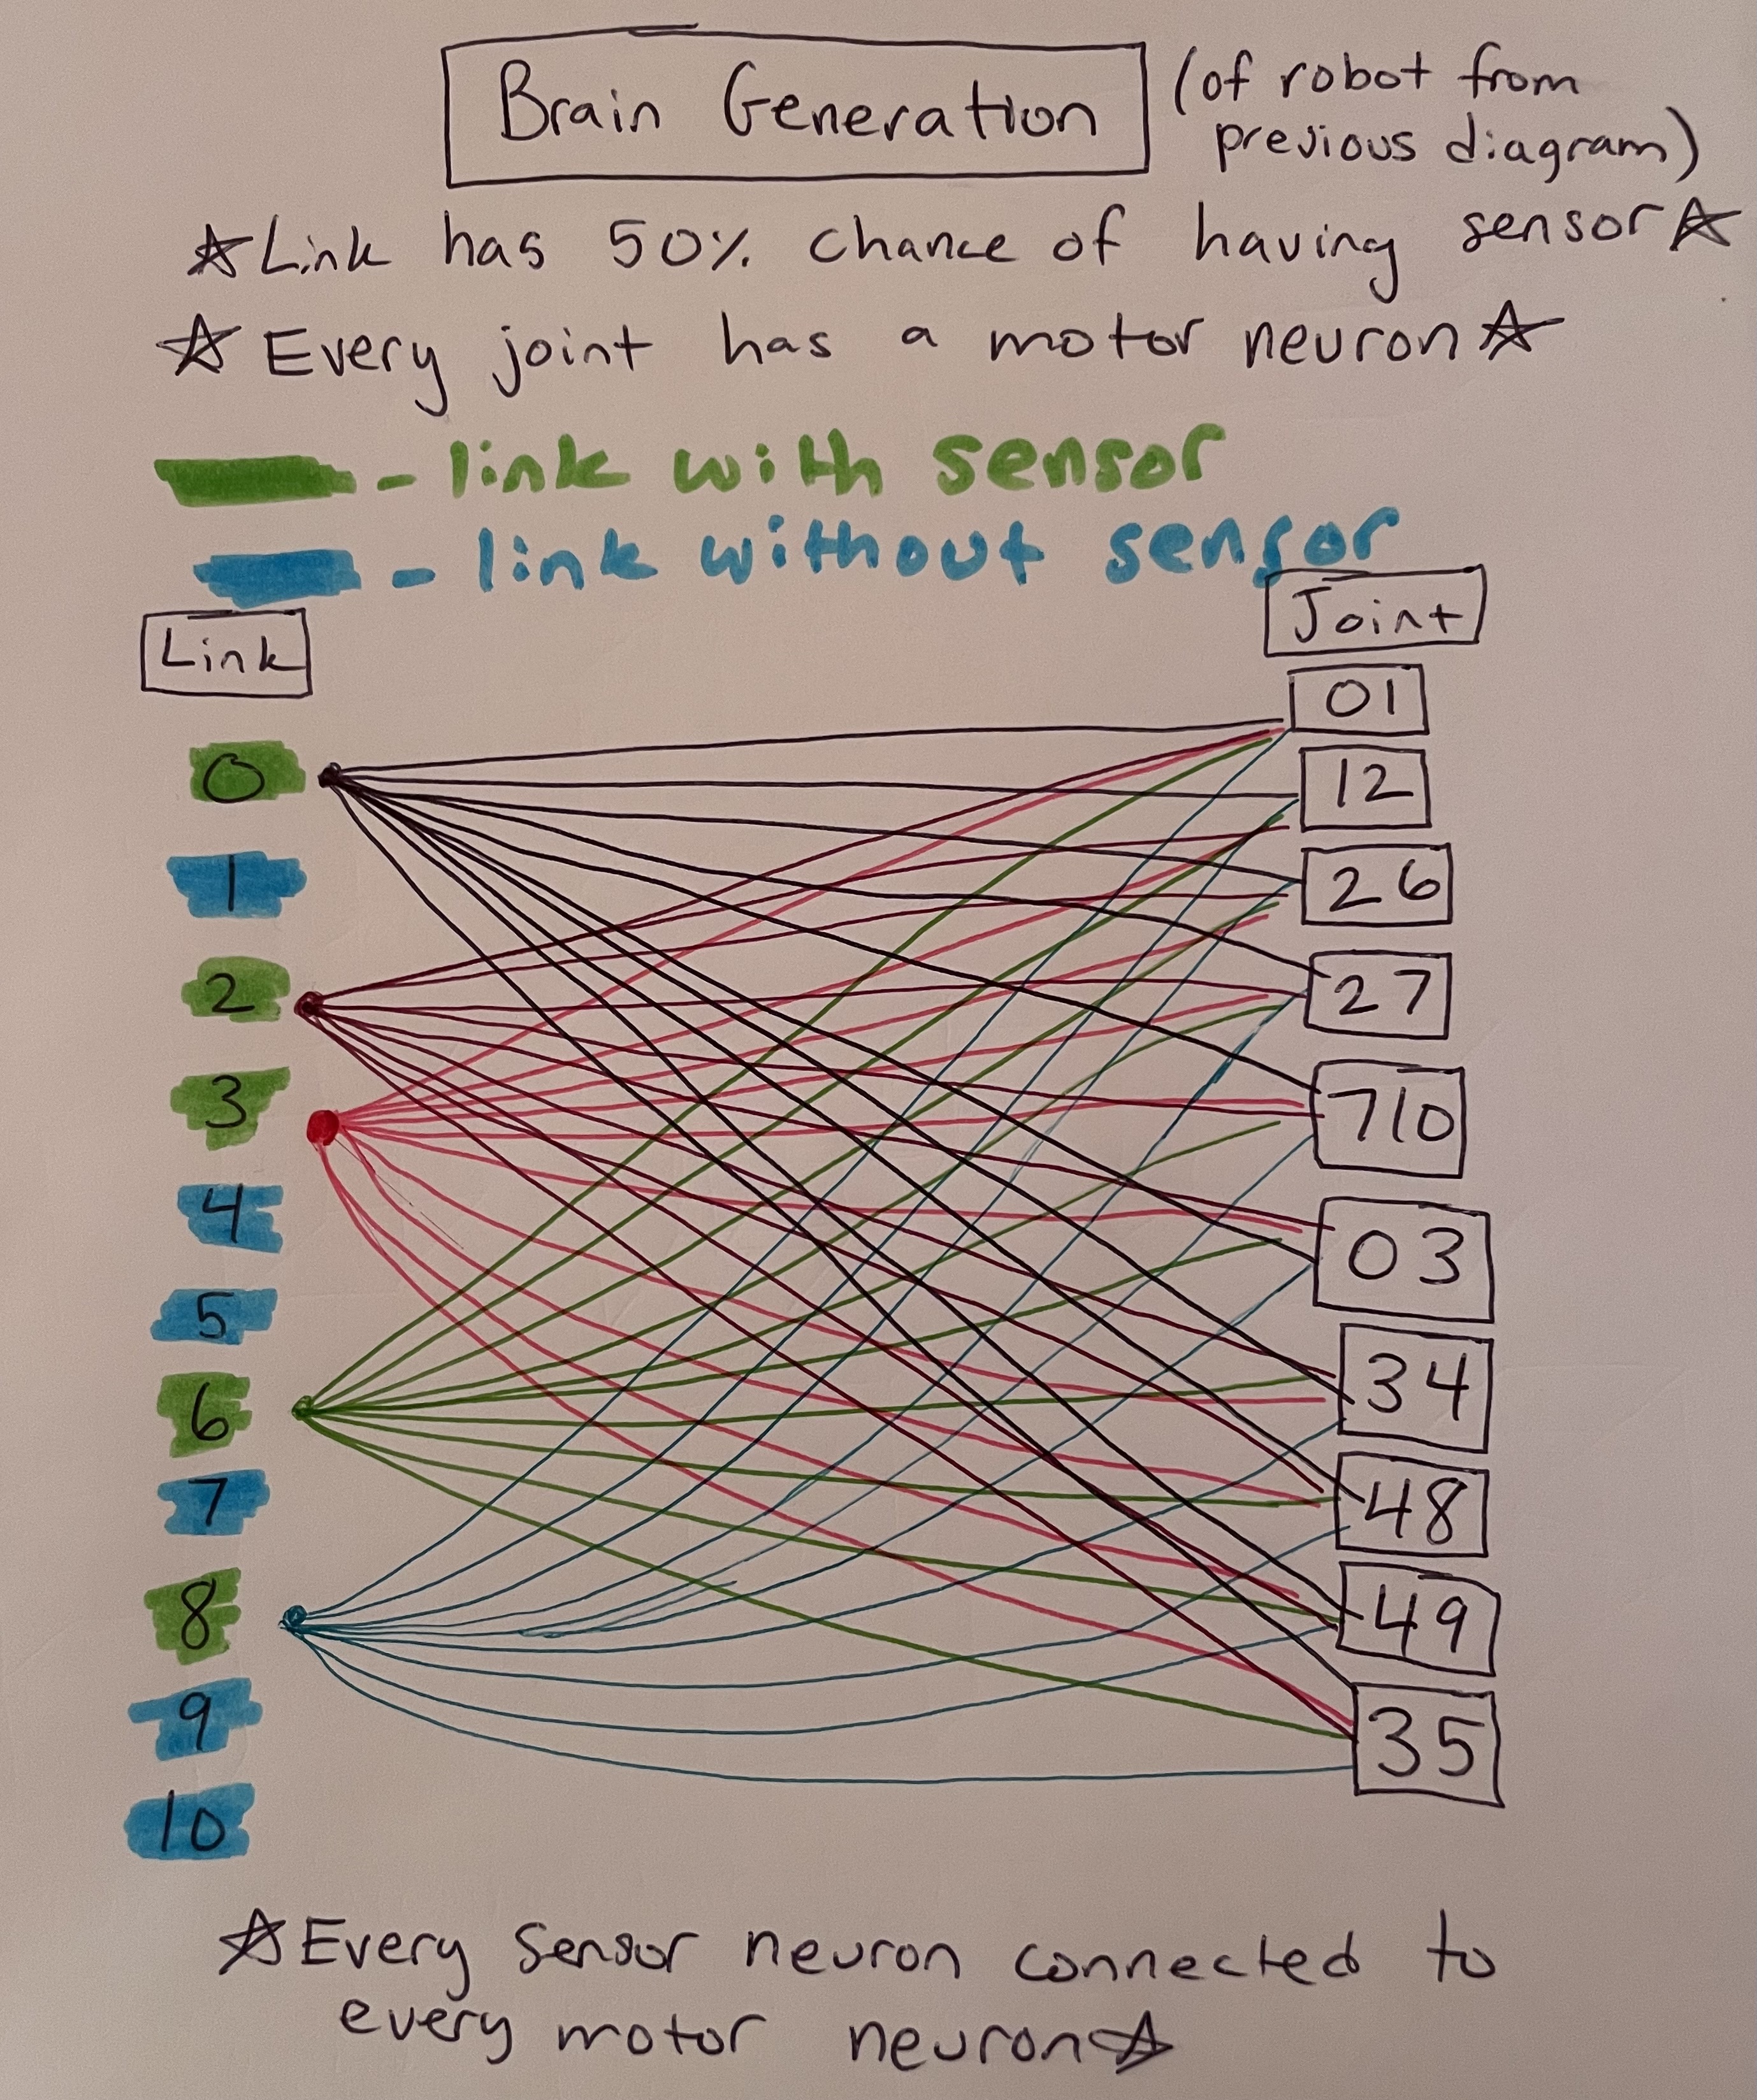 Brain Generation
(of robot from
previous diagram)
☆Link has 50% chance of having sensor☆
☆Every joint has a motor neuron☆
- link with sensor
- link without sensor
Link
Joint
0
1
2
3
4
5
6
7
8
9
10
01
12
26
27
710
03
34
48
49
35
☆Every sensor neuron connected to
every motor neuron☆